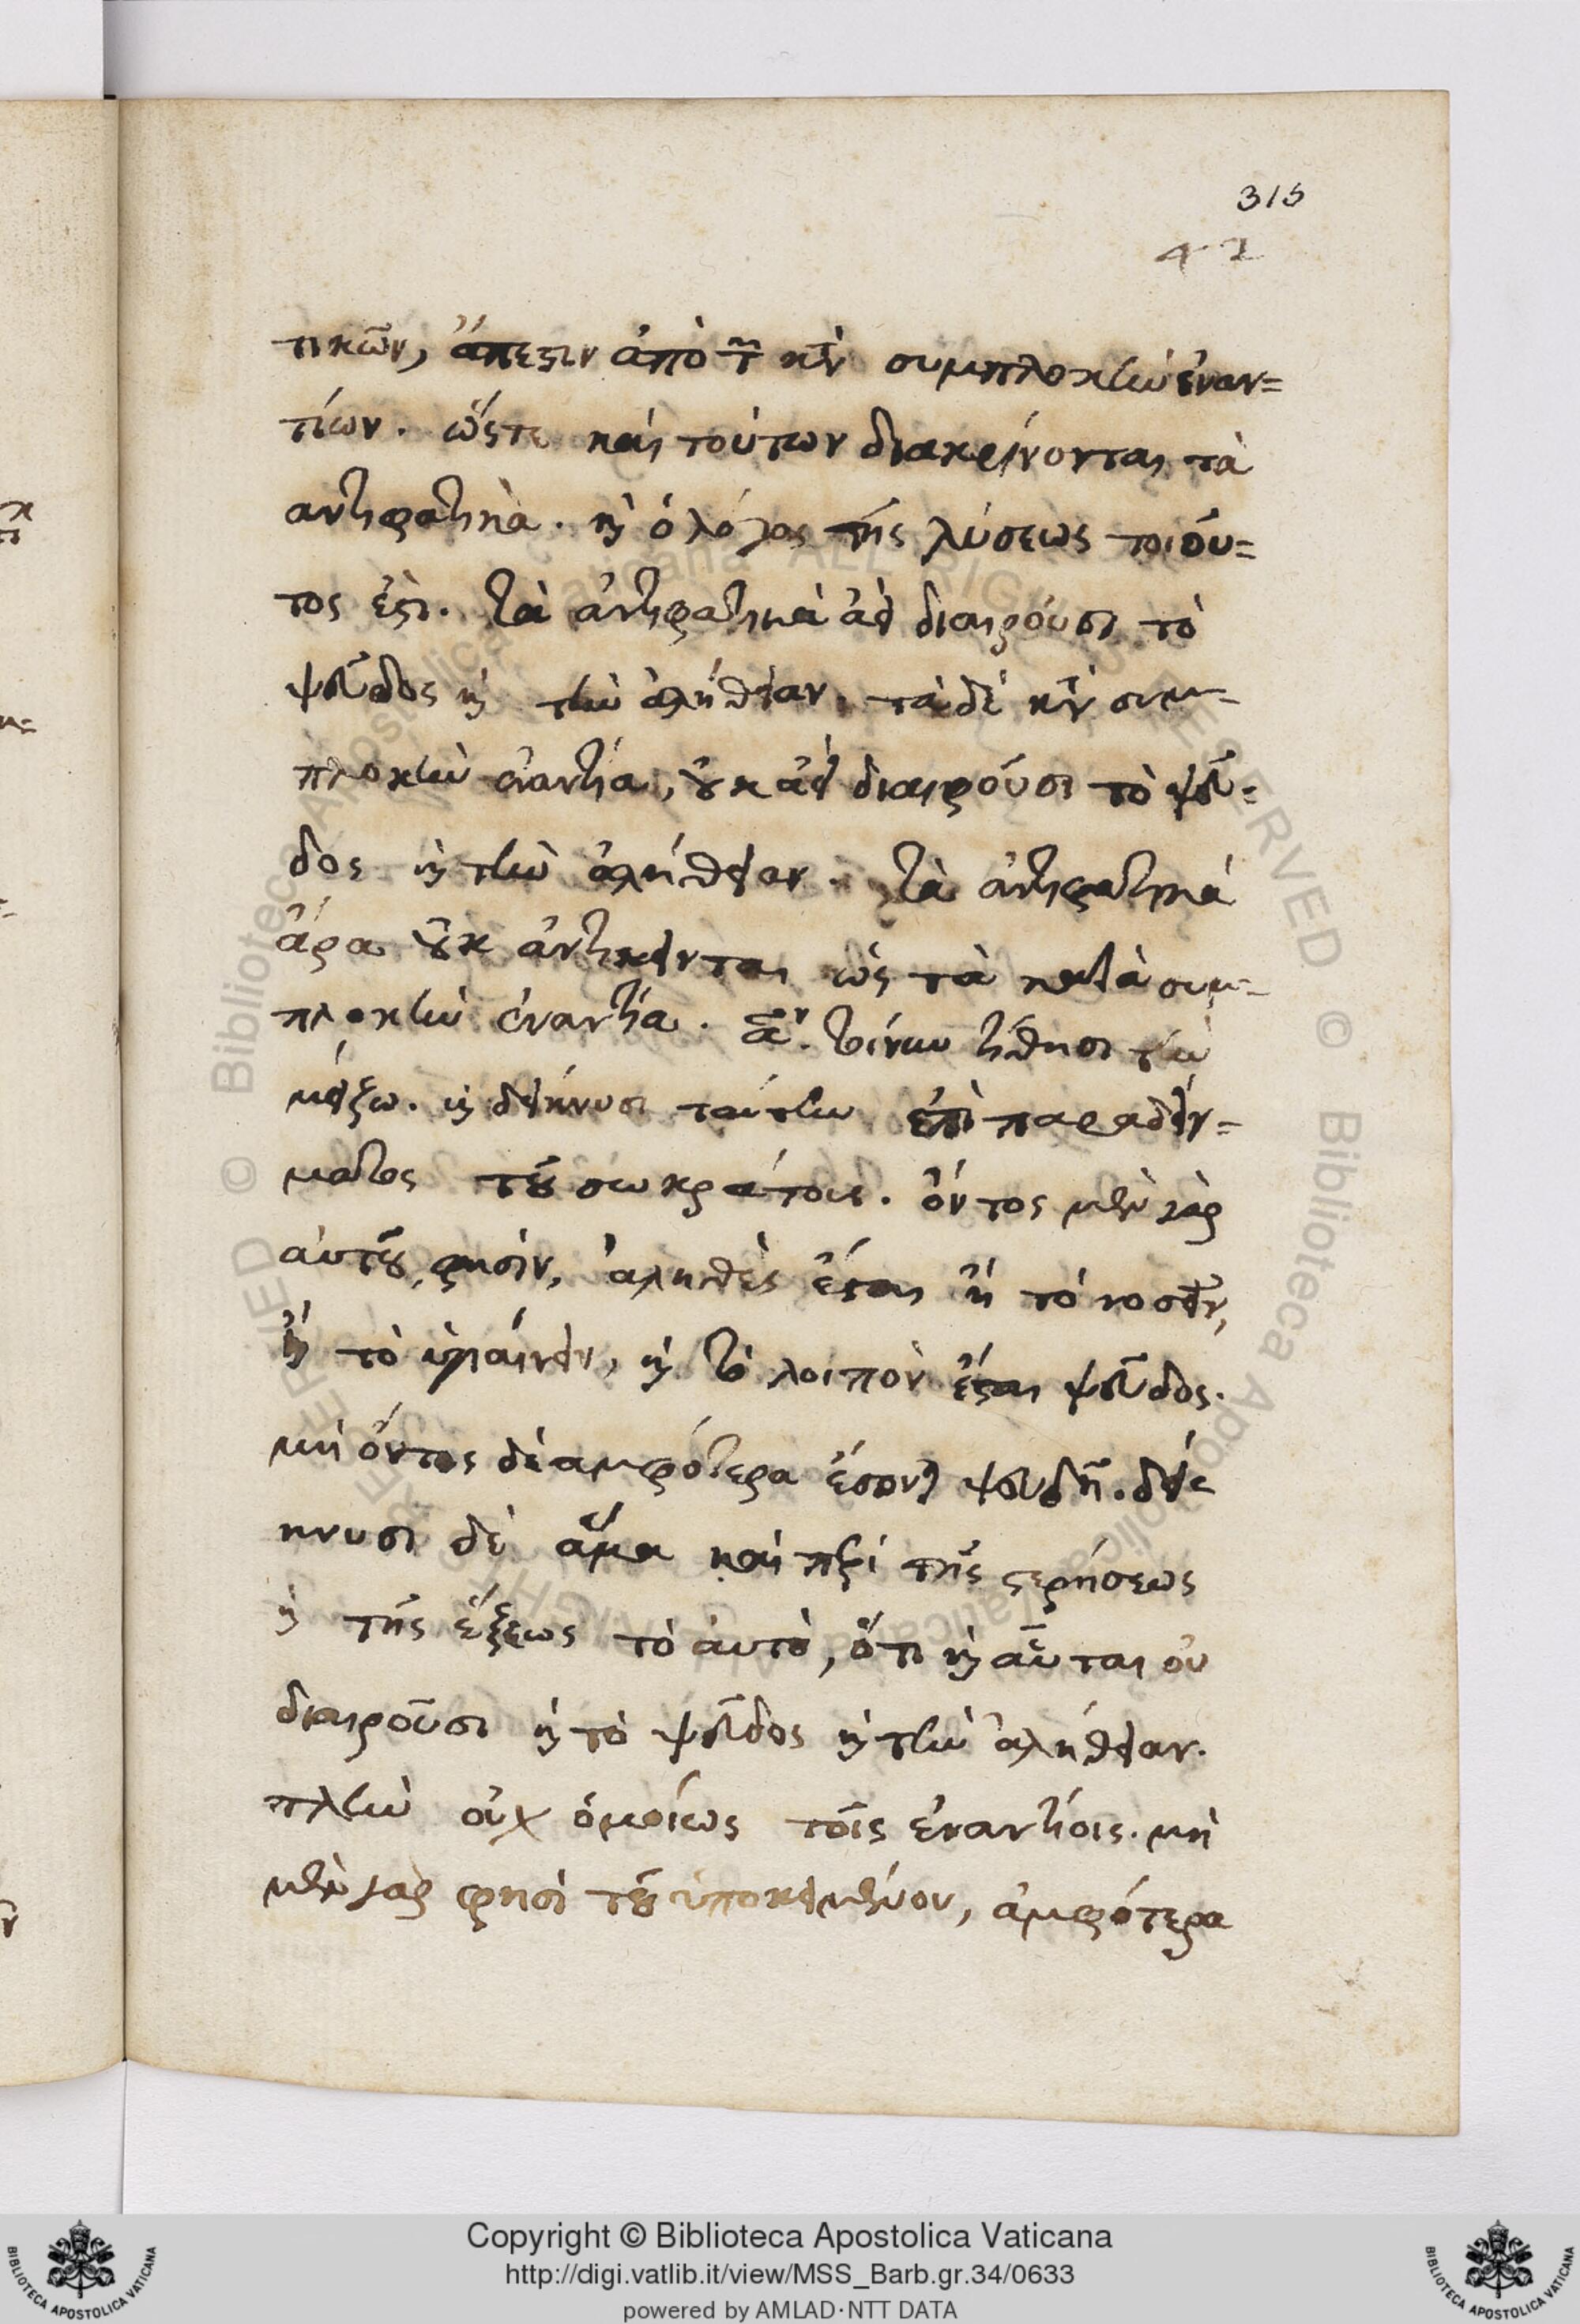 315
42
τικῶν, ἄπεστιν ἀπὸ τῶν κατὰ συμπλοκὴν ἐναν=
τίων. ὥστε καὶ τούτων διακρίνονται τὰ
αντιφατικὰ. καὶ ὁ λόγος τῆς λύσεως τοιοῦ=
τος ἐστι. τὰ ἀντιφατικὰ ἀεὶ διαιροῦσι τὸ
ψεῦδος καὶ τὴν ἀλήθειαν, τὰ δὲ κατὰ συμ-
πλοκὴν ἐναντία, οὐκ ἀεὶ διαιροῦσι τὸ ψεῦ=
δος καὶ τὴν ἀλήθειαν. τὰ ἀντιφατικά
ἄρα οὐκ ἀντίκεινται ὡς τὰ κατὰ συμ-
πλοκὴν ἐναντία. τίθησι τὴν
μείζω. καὶ δείκνυσι ταύτην ἐπὶ παραδείγ=
ματος τοῦ σωκράτους. ὄντος μὲν γὰρ
αὐτοῦ, φησὶν, ἀληθὲς ἔσται ἢ τὸ νοσεῖν,
ἢ τὸ ὑγιαίνειν, καὶ τὸ λοιπὸν ἔσται ψεῦδος.
μὴ ὄντος δὲ ἀμφότερα ἔσονται ψευδῆ. δεί
κνυσι δὲ ἅμα καὶ περὶ τῆς στερήσεως
καὶ τῆς ἕξεως τὸ ἀυτὸ, ὅτι καὶ αὗται οὐ
διαιροῦσι καὶ τὸ ψεῦδος καὶ τὴν ἀλήθειαν.
πλὴν οὐχ ὁμοίως τοῖς ἐναντίοις. μὴ
μὲν γὰρ φησὶ τοῦ ὑποκειμένου, ἀμφότερα
Copyright © Biblioteca Apostolica Vaticana
http://digi.vatlib.it/view/MSS_Barb.gr.34/0633
powered by AMLAD·NTT DATA